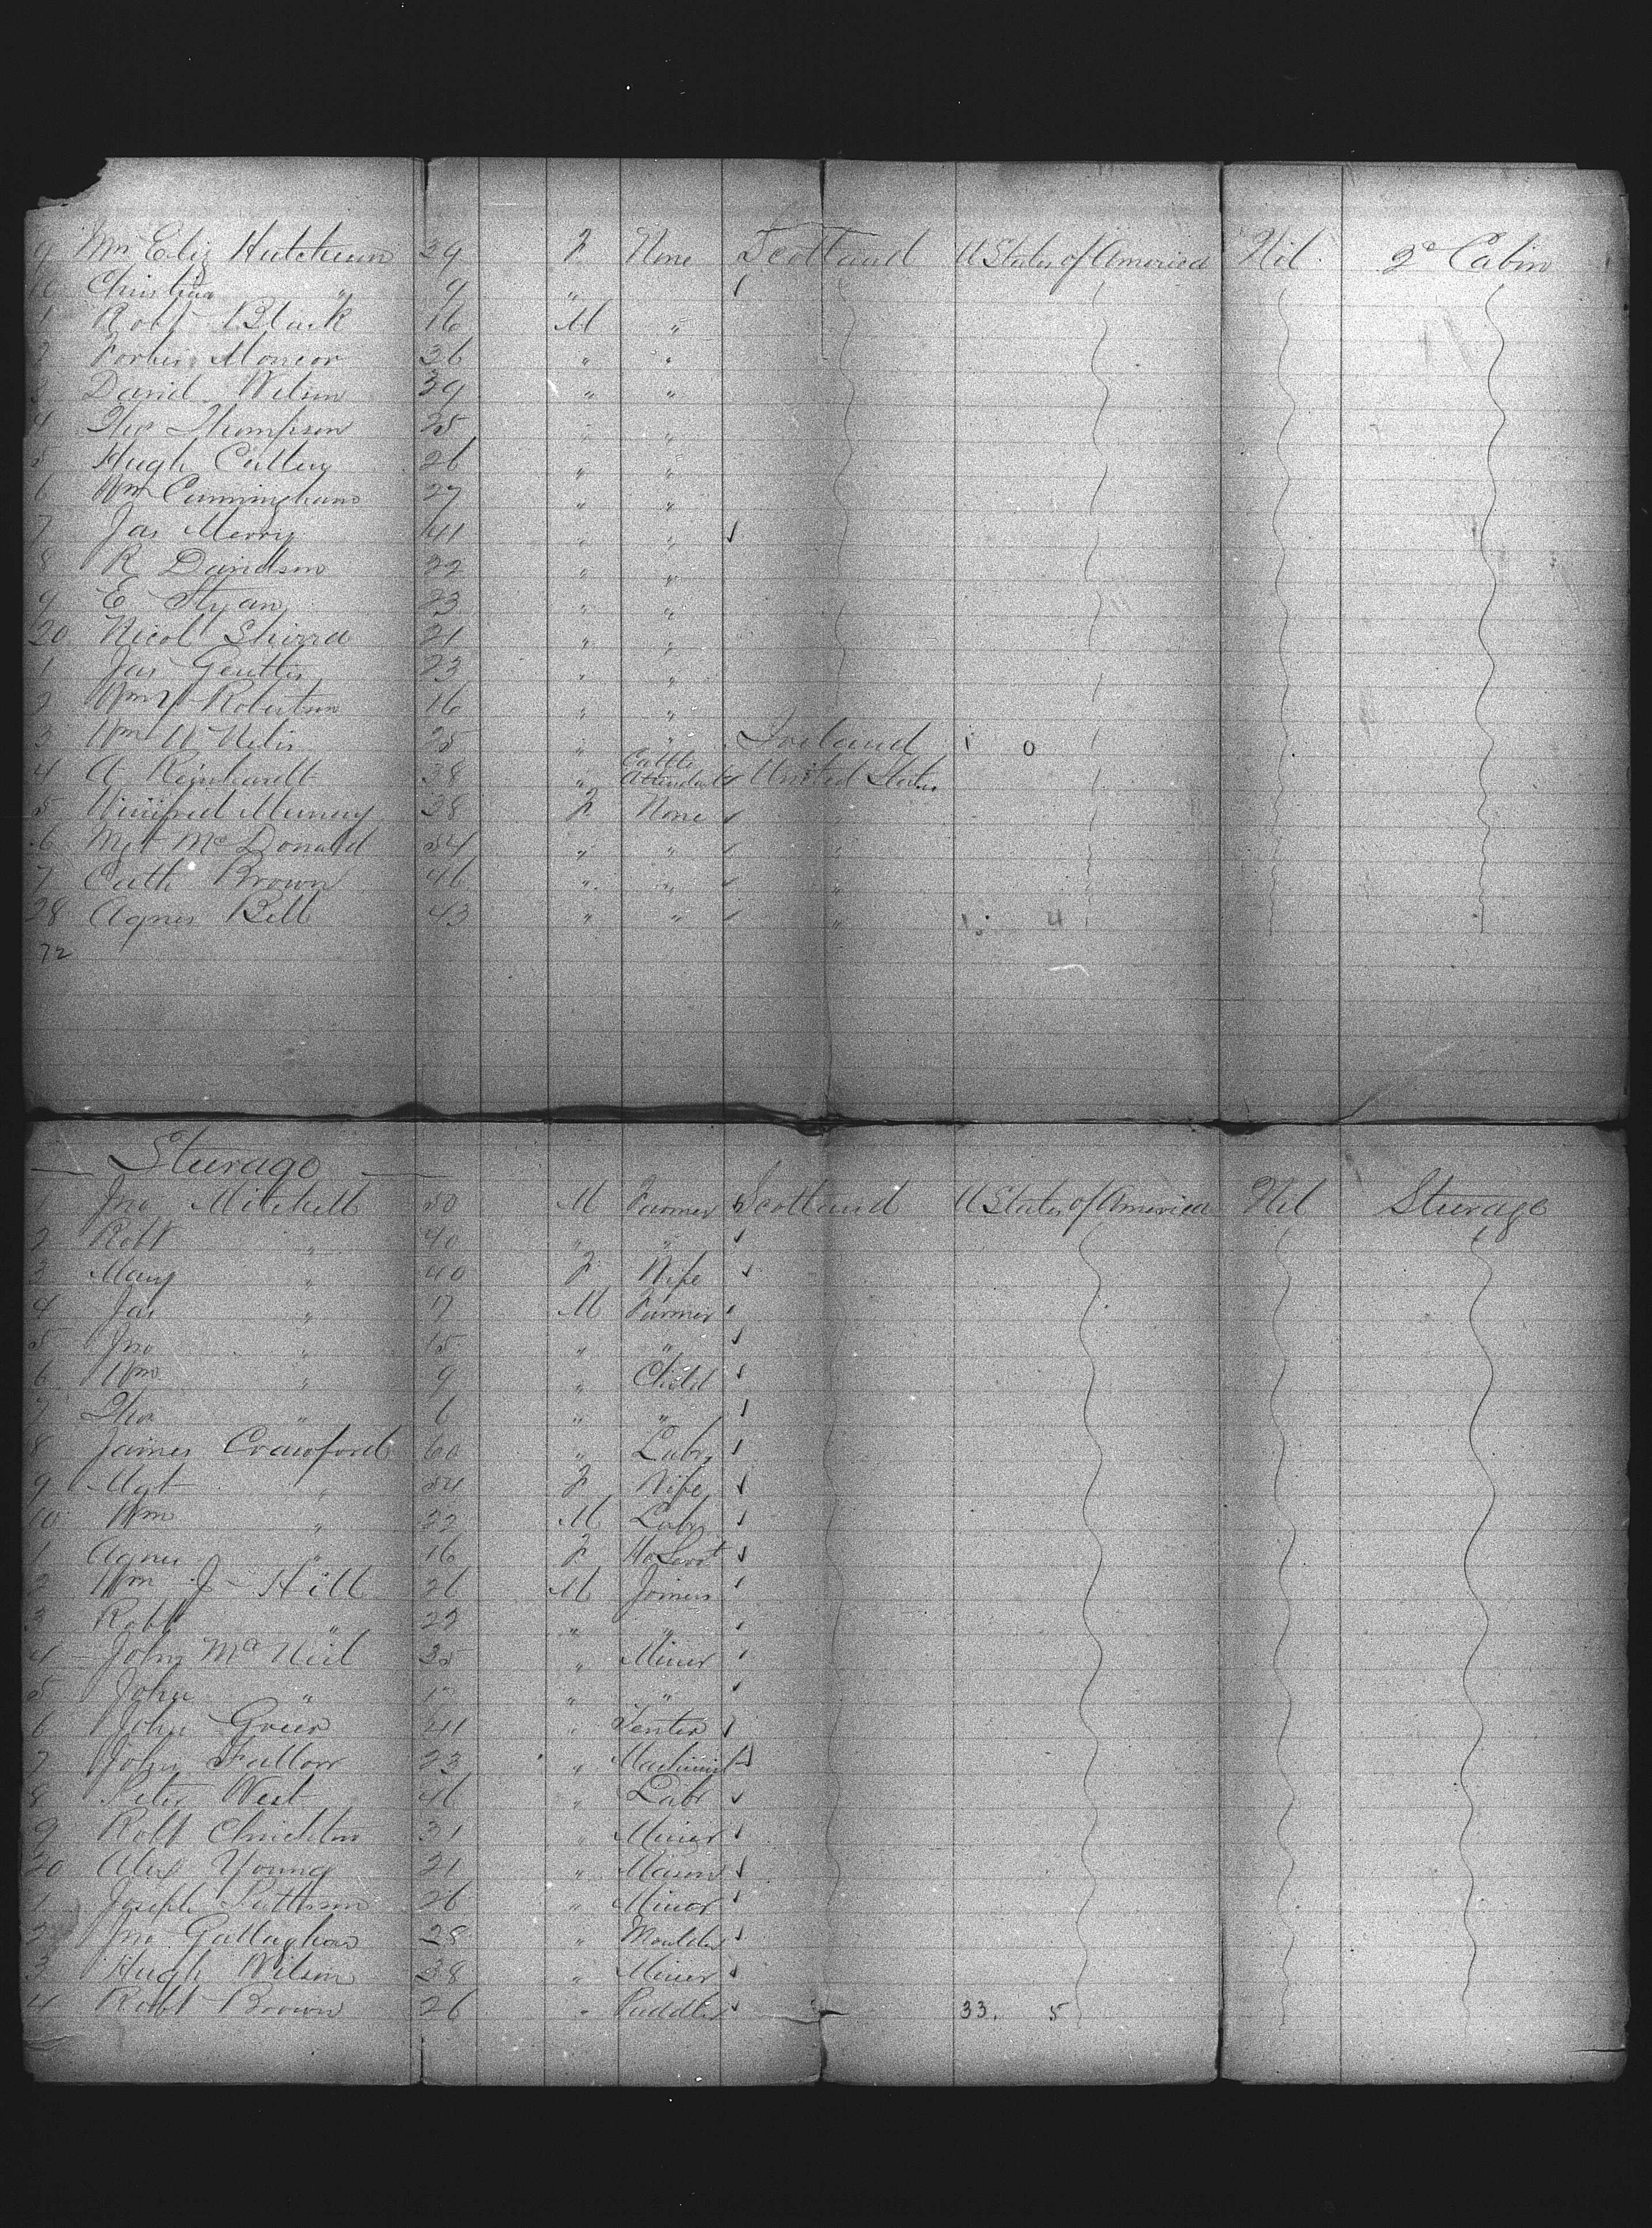 9 Mrs Eliz Hutcheson 39 F None Scotland U States of America Nil 2d Cabin
10 Christina " 9 "
1 Robt Black 16 M "
2 Forbes Moncor 36 " "
3 David Wilson 39 " "
4 Thos Thompson 25 " "
5 Hugh 26 " "
6 Wm Cunningham 27 " "
7 Jas Merry 41 " "
8 R Davidson 22 " "
9 E 23 " "
20 Nicol Shirra 21 " "
1 Jas 23 " "
2 Wm Y Robertson 16 " "
3 Wm 25 " " Ireland 1 0
4 A Reinhardt 38 " Cattle Attendant United States
5 Winifred Murray 28 F None "
6 Mgt McDonald 54 " " "
7 Cath Brown 46 " " "
28 Agnes Bell 43 " " " 1. 4
72
— Steerage —
1 Jno Mitchell 50 M Farmer Scotland U States of America Nil Steerage
2 Robt " 40 " "
3 Mary " 40 F Wife
4 Jas " 17 M Farmer
5 Jno " 15 " "
6 Wm " 9 " Child
7 Thos " 6 " "
8 James Crawford 60 " Labr
9 Mgt " 54 F Wife
10 Wm " 22 M Labr
1 Agnes " 16 F Ho Servt
2 Wm J Hill 26 M Joiners
3 Robt " 22 " "
4 John McNeil 35 " Miner
5 John " " "
6 John Greer " Tenter
7 John Fallow 23 " Machinist
8 Peter West 46 " Labr
9 Robt Chrichton 31 " Miner
20 Alex Young 21 " Mason
1 Joseph Pattison 26 " Minor
2 Jno Gallagher 28 " Moulder
3 Hugh Wilson 38 " Miner
4 Robt Brown 26 " Puddler 33. 5